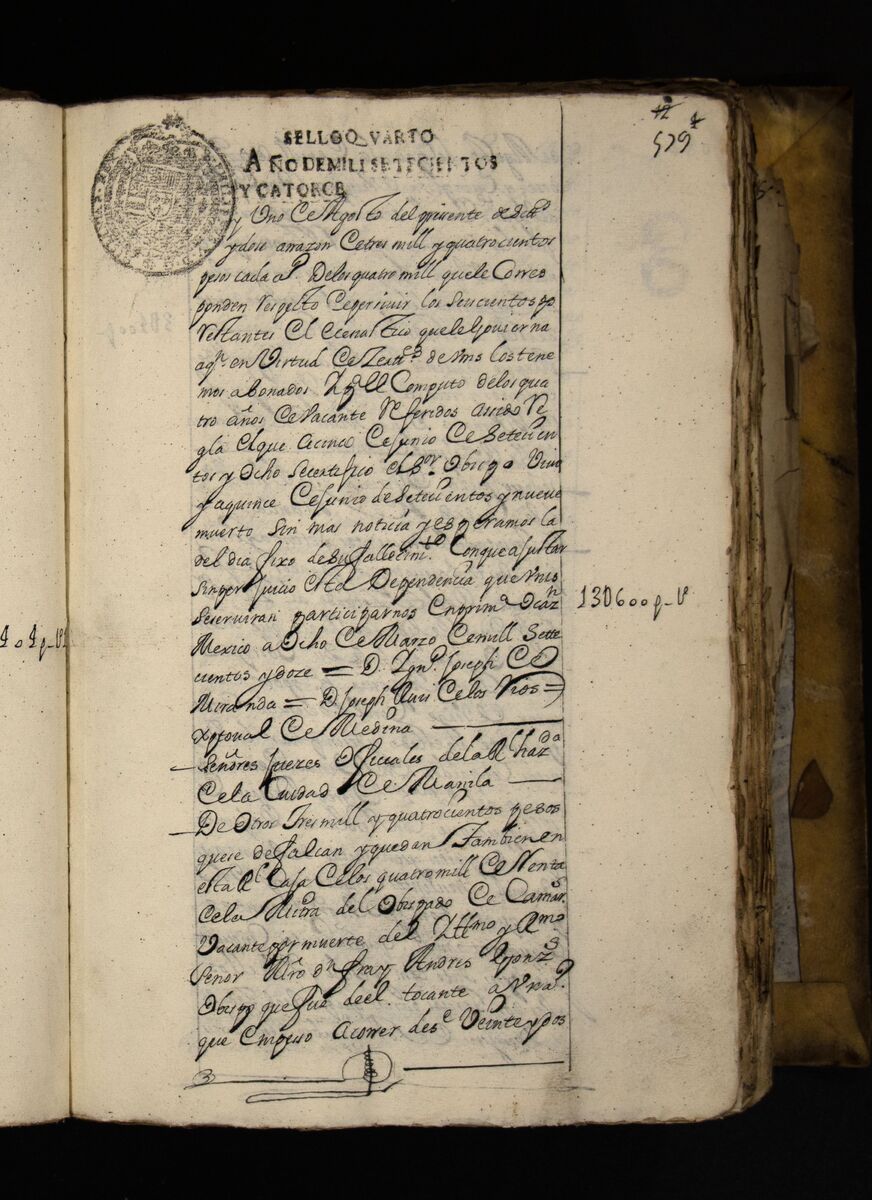 42
4
579
SELLO QVARTO
AÑO DE MILL SETECIENTOS
Y CATORCE
y Uno de Agosto del presente de Setes
y dose arrazon de tres mill y quatrocientos
pesos cada aº. De los quatro mill que le Corres
ponden respecto de persiuir los seiscientos ps
restantes El Ecclesiastico que le Gouierna
aqn en Virtud de de Vms los tene
mos abonados Y pa el Computo de los qua
tro años de Vacante referidos assido Re
gla el que a cinco de Junio de Setecien
tos y Ocho se certifico el Sor. Obispo Viuo
y a quince de Junio de Setecientos y nueue
muerto sin mas noticia y esperamos la
del dia fixo de su fallecimto. Con que ajustar
sin perjuicio esta Dependencia que Vms
se seruiran participarnos en primª Ocazn
Mexico a Ocho de Marzo de mill Sette
cientos y doze = D. Ygno. Joseph de
Miranda = D. Joseph Ruis de los Rios =
Xptoual de Medina
Señres Juezes Oficiales de la Rl hazda
de la Ciudad de Manila
De Otros Tres mill y quatrocientos pesos
que se desfalcan y quedan Tambien en
esta Rl Casa de los quatro mill de Renta
de la Mitra del Obispado de Camars
Vacante por muerte del Yllmo y Rmo
Señor Mro dn fray Andres Gonzs
Obispo que fue de el. tocante a Vn aº.
que Empeso a correr desde Veinte y dos
130600p-U